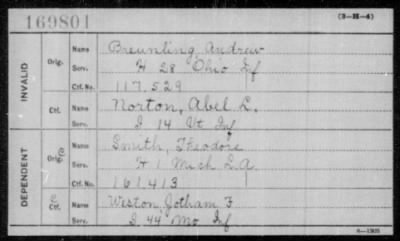 169801
(3-H-4)
INVALID
Orig.
Name Breunling, Andrew
Serv. H 28 Ohio Inf
Ctf. No. 117.529
Ctf.
Name Norton, Abel L.
Serv. I 14 Vt Inf
DEPENDENT
Orig.
Name Smith, Theodore
Serv. H 1 Mich L.A.
Ctf. No. 161.413
Ctf.
Name Weston, Jotham F
Serv. I. 44 Mo Inf
6-1305